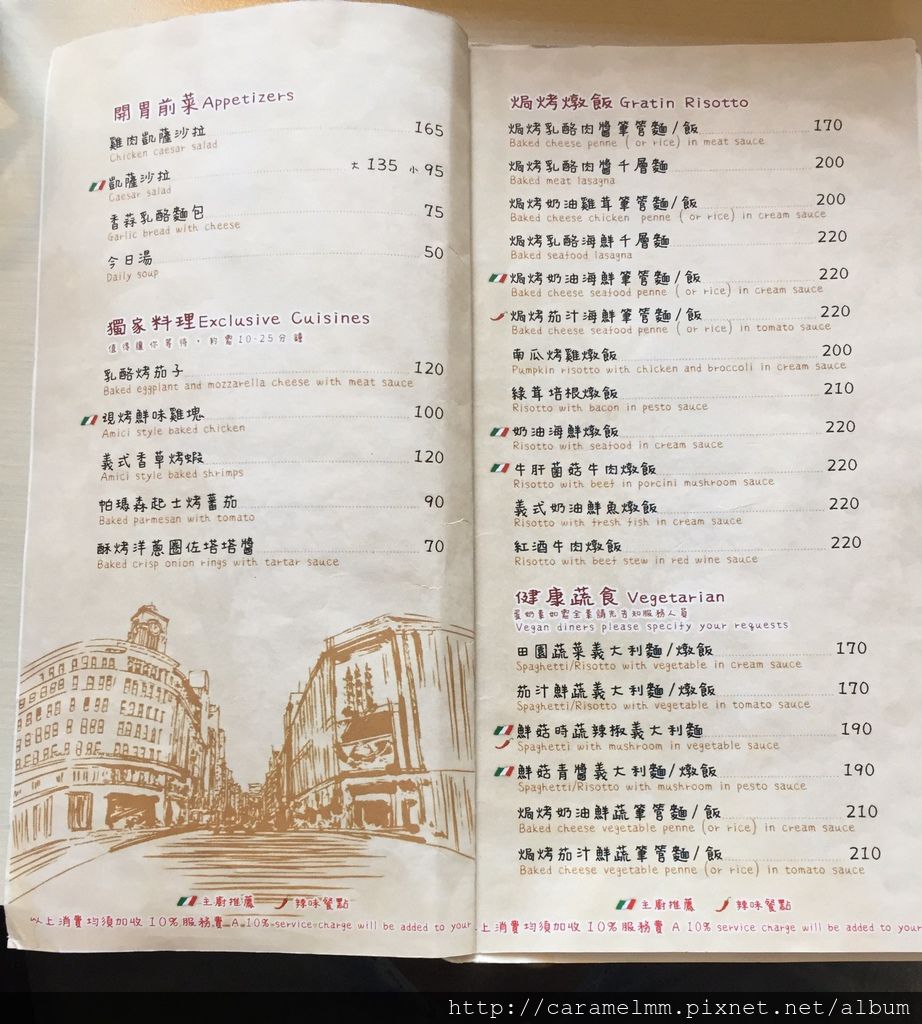 開胃前菜 Appetizers
雞肉凱薩沙拉 165
Chicken caesar salad
凱薩沙拉 大 135 小 95
Caesar salad
香蒜乳酪麵包 75
Garlic bread with cheese
今日湯 50
Daily soup
獨家料理 Exclusive Cuisines
值得讓你等待，約需10-25分鐘
乳酪烤茄子 120
Baked eggplant and mozzarella cheese with meat sauce
現烤鮮味雞塊 100
Amici style baked chicken
義式香草烤蝦 120
Amici style baked shrimps
帕瑪森起士烤蕃茄 90
Baked parmesan with tomato
酥烤洋蔥圈佐塔塔醬 70
Baked crisp onion rings with tartar sauce
主廚推薦 辣味餐點
以上消費均須加收 10%服務費 A 10% service charge will be added to your
焗烤燉飯 Gratin Risotto
焗烤乳酪肉醬筆管麵/飯 170
Baked cheese penne ( or rice) in meat sauce
焗烤乳酪肉醬千層麵 200
Baked meat lasagna
焗烤奶油雞茸筆管麵/飯 200
Baked cheese chicken penne ( or rice) in cream sauce
焗烤乳酪海鮮千層麵 220
Baked seafood lasagna
焗烤奶油海鮮筆管麵/飯 220
Baked cheese seafood penne ( or rice) in cream sauce
焗烤茄汁海鮮筆管麵/飯 220
Baked cheese seafood penne ( or rice) in tomato sauce
南瓜烤雞燉飯 200
Pumpkin risotto with chicken and broccoli in cream sauce
綠茸培根燉飯 210
Risotto with bacon in pesto sauce
奶油海鮮燉飯 220
Risotto with seafood in cream sauce
牛肝菌菇牛肉燉飯 220
Risotto with beef in porcini mushroom sauce
義式奶油鮮魚燉飯 220
Risotto with fresh fish in cream sauce
紅酒牛肉燉飯 220
Risotto with beef stew in red wine sauce
健康蔬食 Vegetarian
蛋奶素如需全素請先告知服務人員
Vegan diners please specify your requests
田園蔬菜義大利麵/燉飯 170
Spaghetti/Risotto with vegetable in cream sauce
茄汁鮮蔬義大利麵/燉飯 170
Spaghetti/Risotto with vegetable in tomato sauce
鮮菇時蔬辣椒義大利麵 190
Spaghetti with mushroom in vegetable sauce
鮮菇青醬義大利麵/燉飯 190
Spaghetti/Risotto with mushroom in pesto sauce
焗烤奶油鮮蔬筆管麵/飯 210
Baked cheese vegetable penne (or rice) in cream sauce
焗烤茄汁鮮蔬筆管麵/飯 210
Baked cheese vegetable penne (or rice) in tomato sauce
主廚推薦 辣味餐點
上消費均須加收 10%服務費 A 10% service charge will be added to your
http://caramelmm.pixnet.net/album